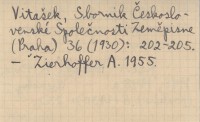 Vitašek, Sborník Českoslo-
venské Společnosti Zeměpisne
(Praha) 36 (1930): 202-205.
— Zierhoffer A. 1955.